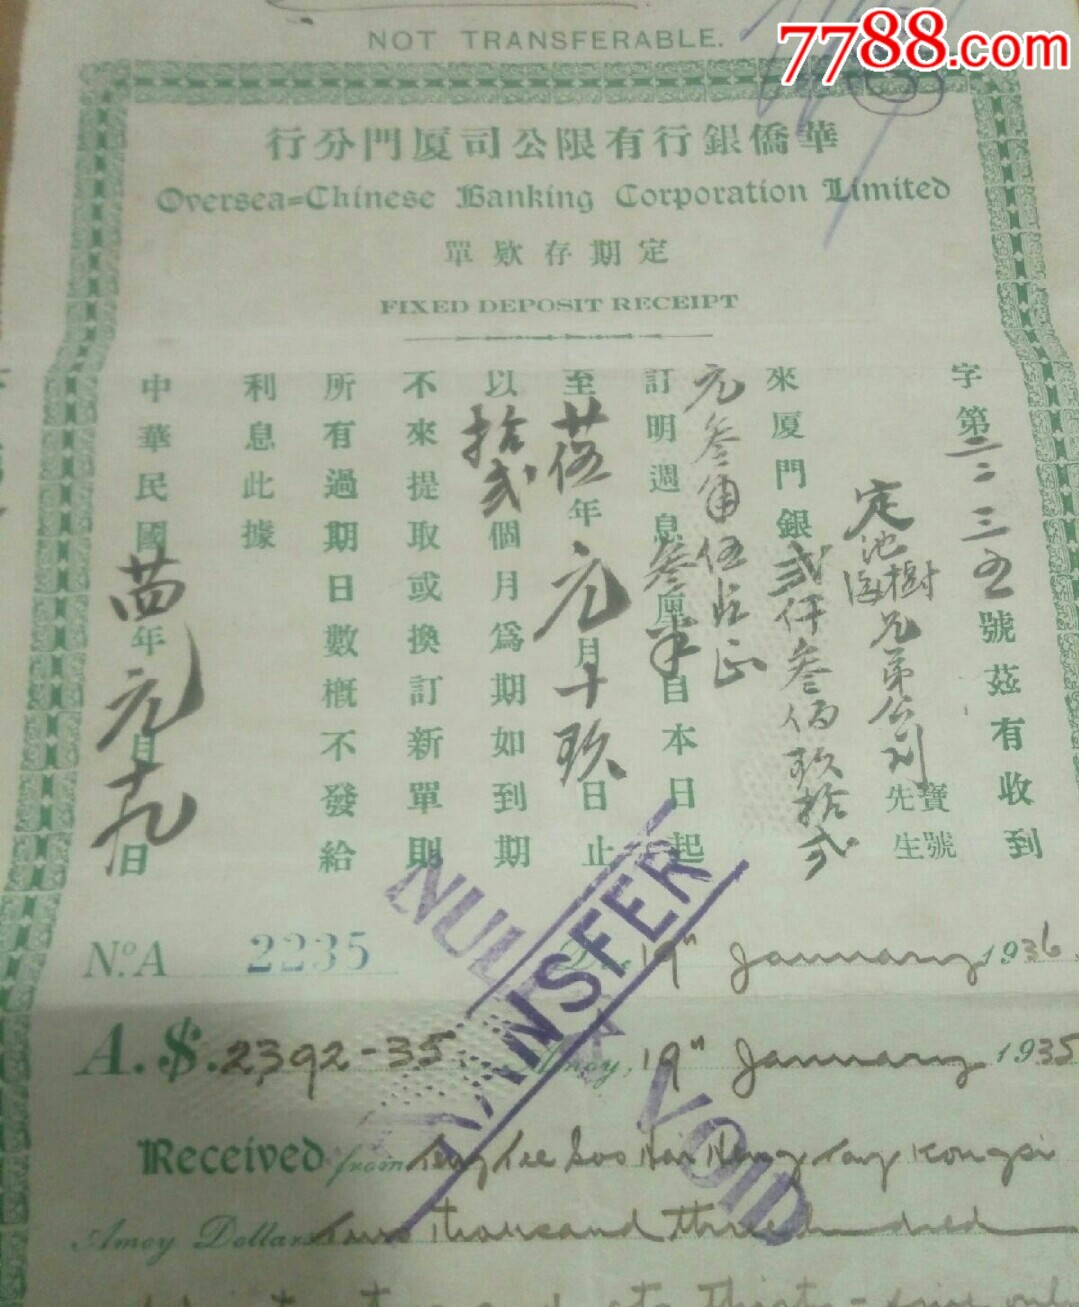 7788.com
NOT TRANSFERABLE.
行分門厦司公限有行銀僑華
Oversea=Chinese Banking Corporation Limited
單欵存期定
FIXED DEPOSIT RECEIPT
字第二二三五號茲有收到
定池樹兄弟公司
寶號
先生
來厦門銀貳仟叁佰玖拾貳
元叁角伍占正
訂明週息叁厘半自本日起
至廿伍年元月十玖日止
以拾貳個月為期如到期
不來提取或換訂新單則
所有過期日數概不發給
利息此據
中華民國廿四年元月十九日
No. A 2235
Due 19" January 1936
A. $. 2392-35
Amoy, 19" January 1935
NULL & VOID
TRANSFER
Received from Teng Tee Soo Hai Heng Tay Kongsi
Amoy Dollars Two thousand three hundred